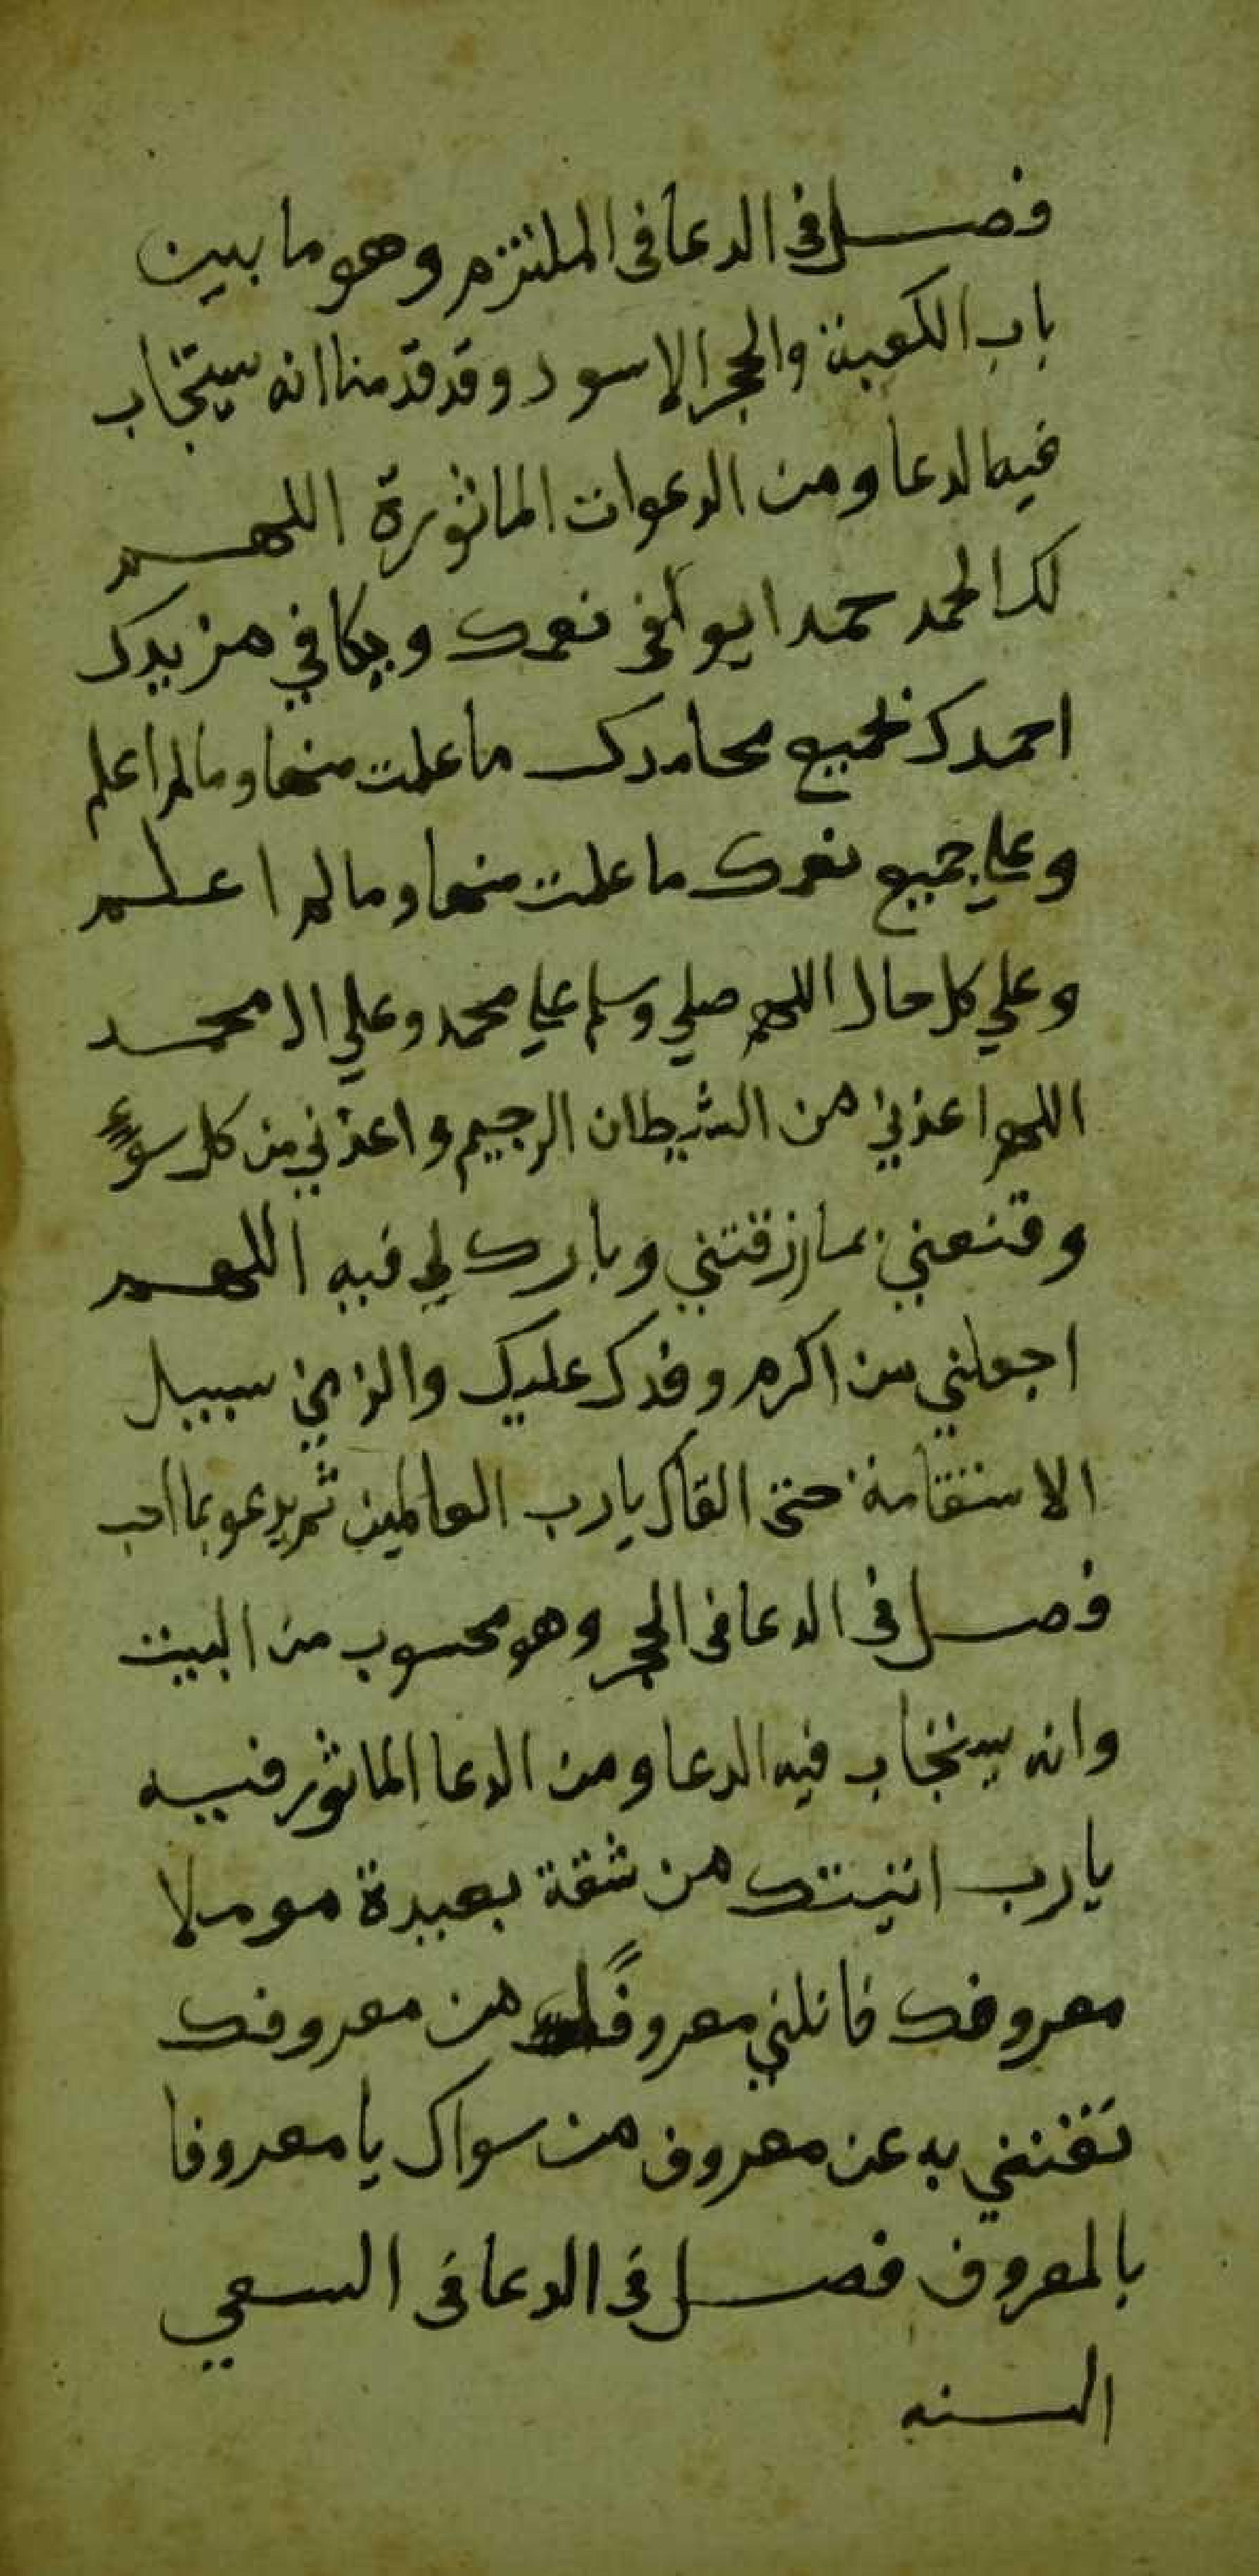 فصل فى الدعا فى الملتزم وهو ما بين
باب الكعبة والحجر الاسود وقد قدمنا انه يستجاب
فيه الدعا ومن الدعوات الماثورة اللهم
لك الحمد حمدا يوافى نعمك ويكافي مزيدك
احمدك بجميع محامدك ما علمت منها وما لم اعلم
وعلي جميع نعمك ما علمت منها وما لم اعلم
وعلي كل حال اللهم صلي وسلم علي محمد وعلي ال محمد
اللهم اعذني من الشيطان الرجيم واعذني من كل سوءٍ
وقنعني بما رزقتني وبارك لي فيه اللهم
اجعلني من اكرم وفدك عليك والزمني سبيل
الاستقامة حتى القاك يا رب العالمين ثم يدعو بما احب
فصل فى الدعا فى الحجر وهو محسوب من البيت
وانه يستجاب فيه الدعا ومن الدعا الماثور فيه
يا رب اتيتك من شقة بعيدة مومملا
معروفك فانلني معروفًا من معروفك
تغنني به عن معروف من سواك يا معروفا
بالمعروف فصل فى الدعا فى السعي
السنه